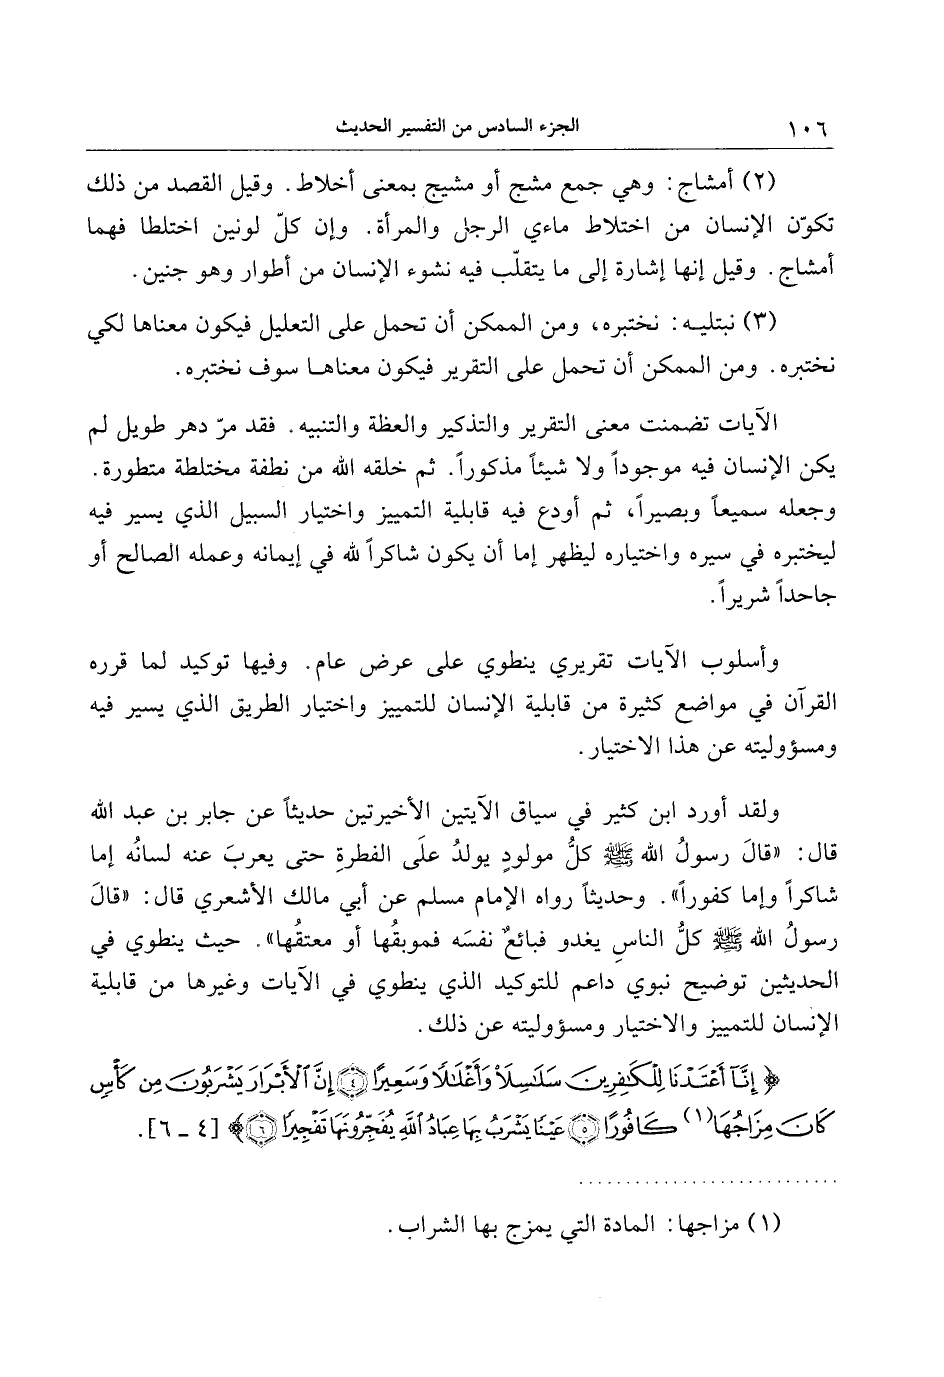 ١٠٦ الجزء السادس من التفسير الحديث
(٢) أمشاج: وهي جمع مشج أو مشيج بمعنى أخلاط. وقيل القصد من ذلك
تكوّن الإنسان من اختلاط ماءي الرجل والمرأة. وإن كلّ لونين اختلطا فهما
أمشاج. وقيل إنها إشارة إلى ما يتقلّب فيه نشوء الإنسان من أطوار وهو جنين.
(٣) نبتليه: نختبره، ومن الممكن أن تحمل على التعليل فيكون معناها لكي
نختبره. ومن الممكن أن تحمل على التقرير فيكون معناها سوف نختبره.
الآيات تضمنت معنى التقرير والتذكير والعظة والتنبيه. فقد مرّ دهر طويل لم
يكن الإنسان فيه موجوداً ولا شيئاً مذكوراً. ثم خلقه الله من نطفة مختلطة متطورة.
وجعله سميعاً وبصيراً، ثم أودع فيه قابلية التمييز واختيار السبيل الذي يسير فيه
ليختبره في سيره واختياره ليظهر إما أن يكون شاكراً لله في إيمانه وعمله الصالح أو
جاحداً شريراً.
وأسلوب الآيات تقريري ينطوي على عرض عام. وفيها توكيد لما قرره
القرآن في مواضع كثيرة من قابلية الإنسان للتمييز واختيار الطريق الذي يسير فيه
ومسؤوليته عن هذا الاختيار.
ولقد أورد ابن كثير في سياق الآيتين الأخيرتين حديثاً عن جابر بن عبد الله
قال: «قالَ رسولُ الله ﷺ كلُّ مولودٍ يولدُ علَى الفطرةِ حتى يعربَ عنه لسانُه إما
شاكراً وإما كفوراً». وحديثاً رواه الإمام مسلم عن أبي مالك الأشعري قال: «قالَ
رسولُ الله ﷺ كلُّ الناسِ يغدو فبائعٌ نفسَه فموبقُها أو معتقُها». حيث ينطوي في
الحديثين توضيح نبوي داعم للتوكيد الذي ينطوي في الآيات وغيرها من قابلية
الإنسان للتمييز والاختيار ومسؤوليته عن ذلك.
﴿ إِنَّآ أَعْتَدْنَا لِلْكَٰفِرِينَ سَلَٰسِلَاْ وَأَغْلَٰلًا وَسَعِيرًا ٤ إِنَّ ٱلْأَبْرَارَ يَشْرَبُونَ مِن كَأْسٍ
كَانَ مِزَاجُهَا(١) كَافُورًا ٥ عَيْنًا يَشْرَبُ بِهَا عِبَادُ ٱللَّهِ يُفَجِّرُونَهَا تَفْجِيرًا ٦ ﴾ [٤ ـ ٦].
(١) مزاجها: المادة التي يمزج بها الشراب.